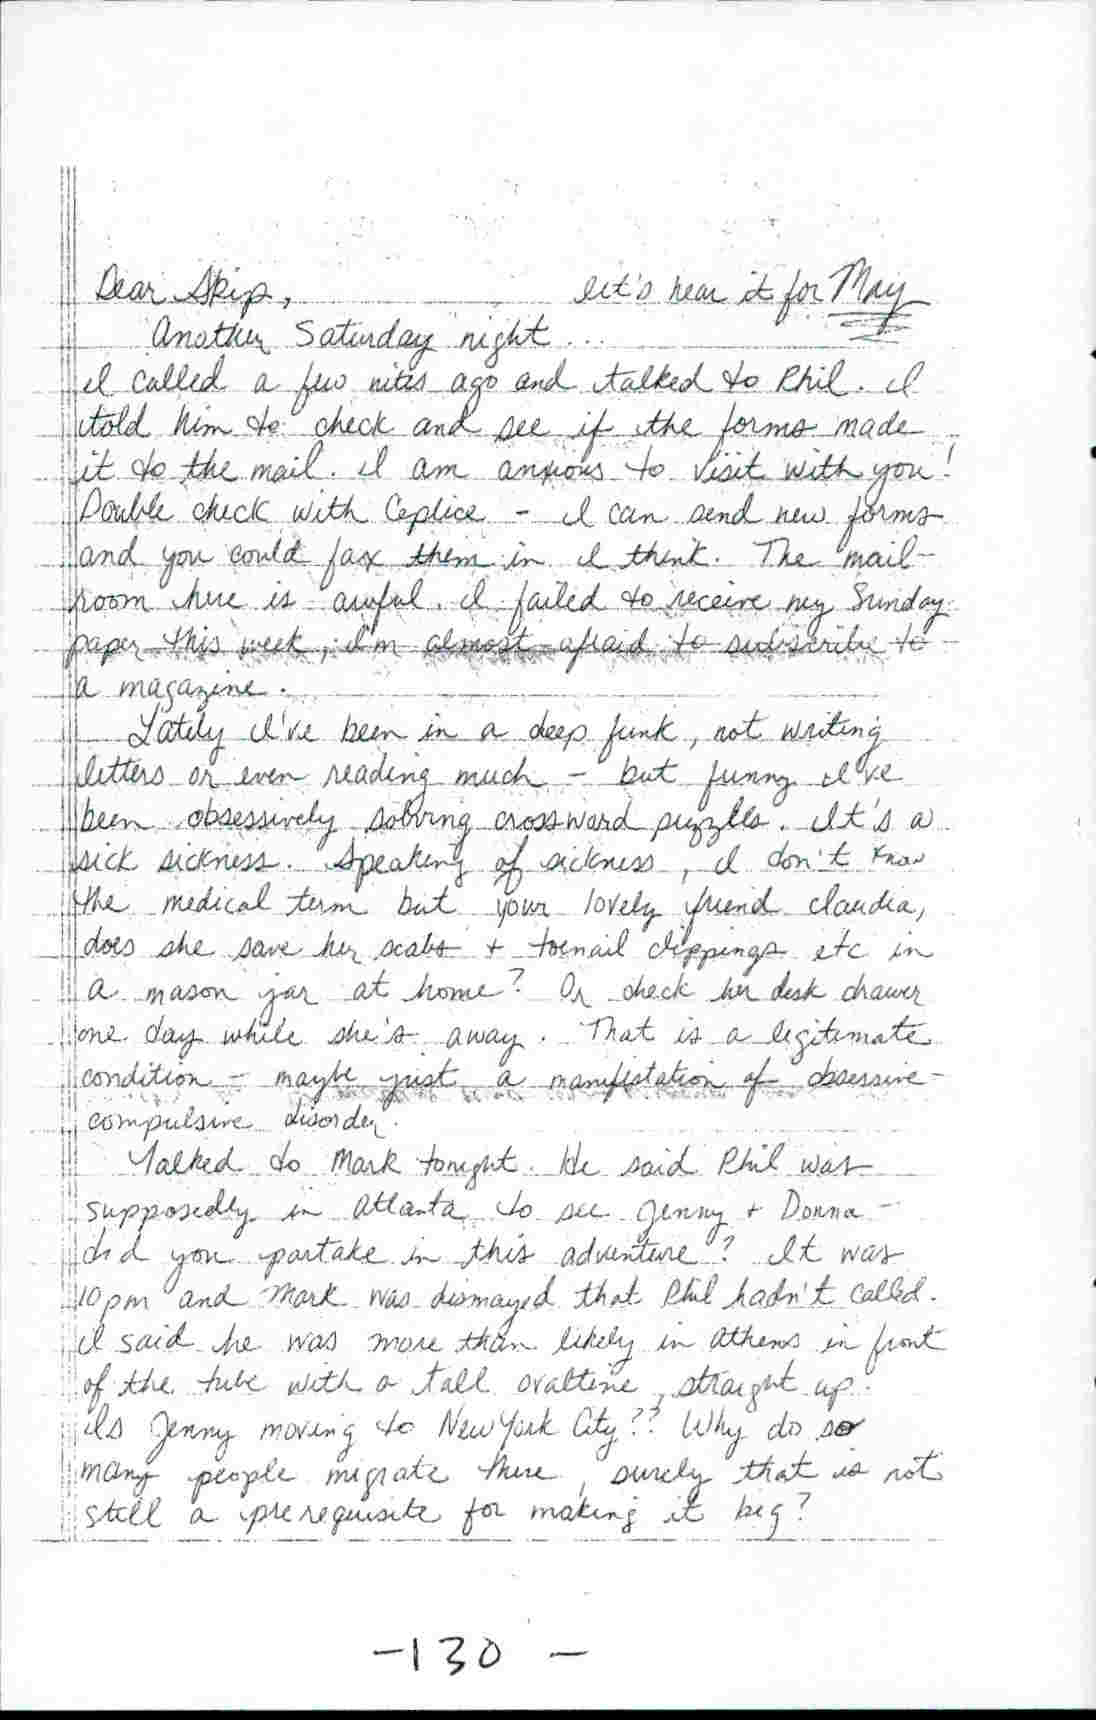 Dear Skip, let's hear it for May
Another Saturday night...
I called a few nites ago and talked to Phil. I
told him to check and see if the forms made
it to the mail. I am anxious to visit with you!
Double check with Ceplice - I can send new forms
and you could fax them in I think. The mail-
room here is awful. I failed to receive my Sunday
paper this week, I'm almost afraid to subscribe to
a magazine.
Lately I've been in a deep funk, not writing
letters or even reading much - but funny I've
been obsessively solving crossword puzzles. It's a
sick sickness. Speaking of sickness, I don't know
the medical term but your lovely friend Claudia,
does she save her scabs + toenail clippings etc in
a mason jar at home? Or check her desk drawer
one day while she's away. That is a legitimate
condition - maybe just a manifestation of obsessive-
compulsive disorder.
Talked to Mark tonight. He said Phil was
supposedly in Atlanta to see Jenny + Donna -
did you partake in this adventure? It was
10 pm and Mark was dismayed that Phil hadn't called.
I said he was more than likely in Athens in front
of the tube with a tall ovaltine, straight up.
Is Jenny moving to New York City?? Why do so
many people migrate there, surely that is not
still a prerequisite for making it big?
-130-